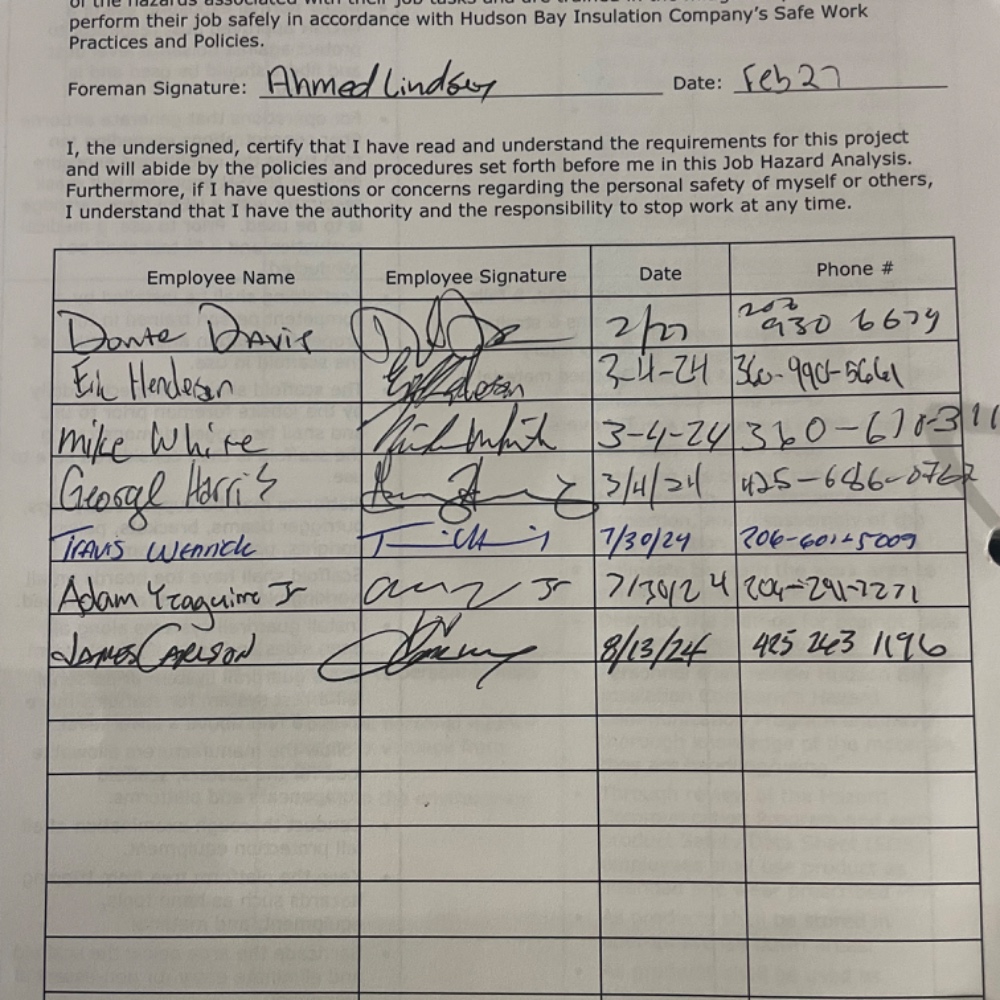 perform their job safely in accordance with Hudson Bay Insulation Company's Safe Work
Practices and Policies.
Foreman Signature: Ahmed Lindsey Date: Feb 27
I, the undersigned, certify that I have read and understand the requirements for this project
and will abide by the policies and procedures set forth before me in this Job Hazard Analysis.
Furthermore, if I have questions or concerns regarding the personal safety of myself or others,
I understand that I have the authority and the responsibility to stop work at any time.
Employee Name Employee Signature Date Phone #
Donte Davis 2/27 930 6679
Eik Henderson 3-4-24 360-990-5661
Mike White 3-4-24
George Harris 3/4/24
Travis 7/30/24
Adam Yzaguirre Jr Jr 7/30/24
James Carlson 8/13/24 425 263 1196